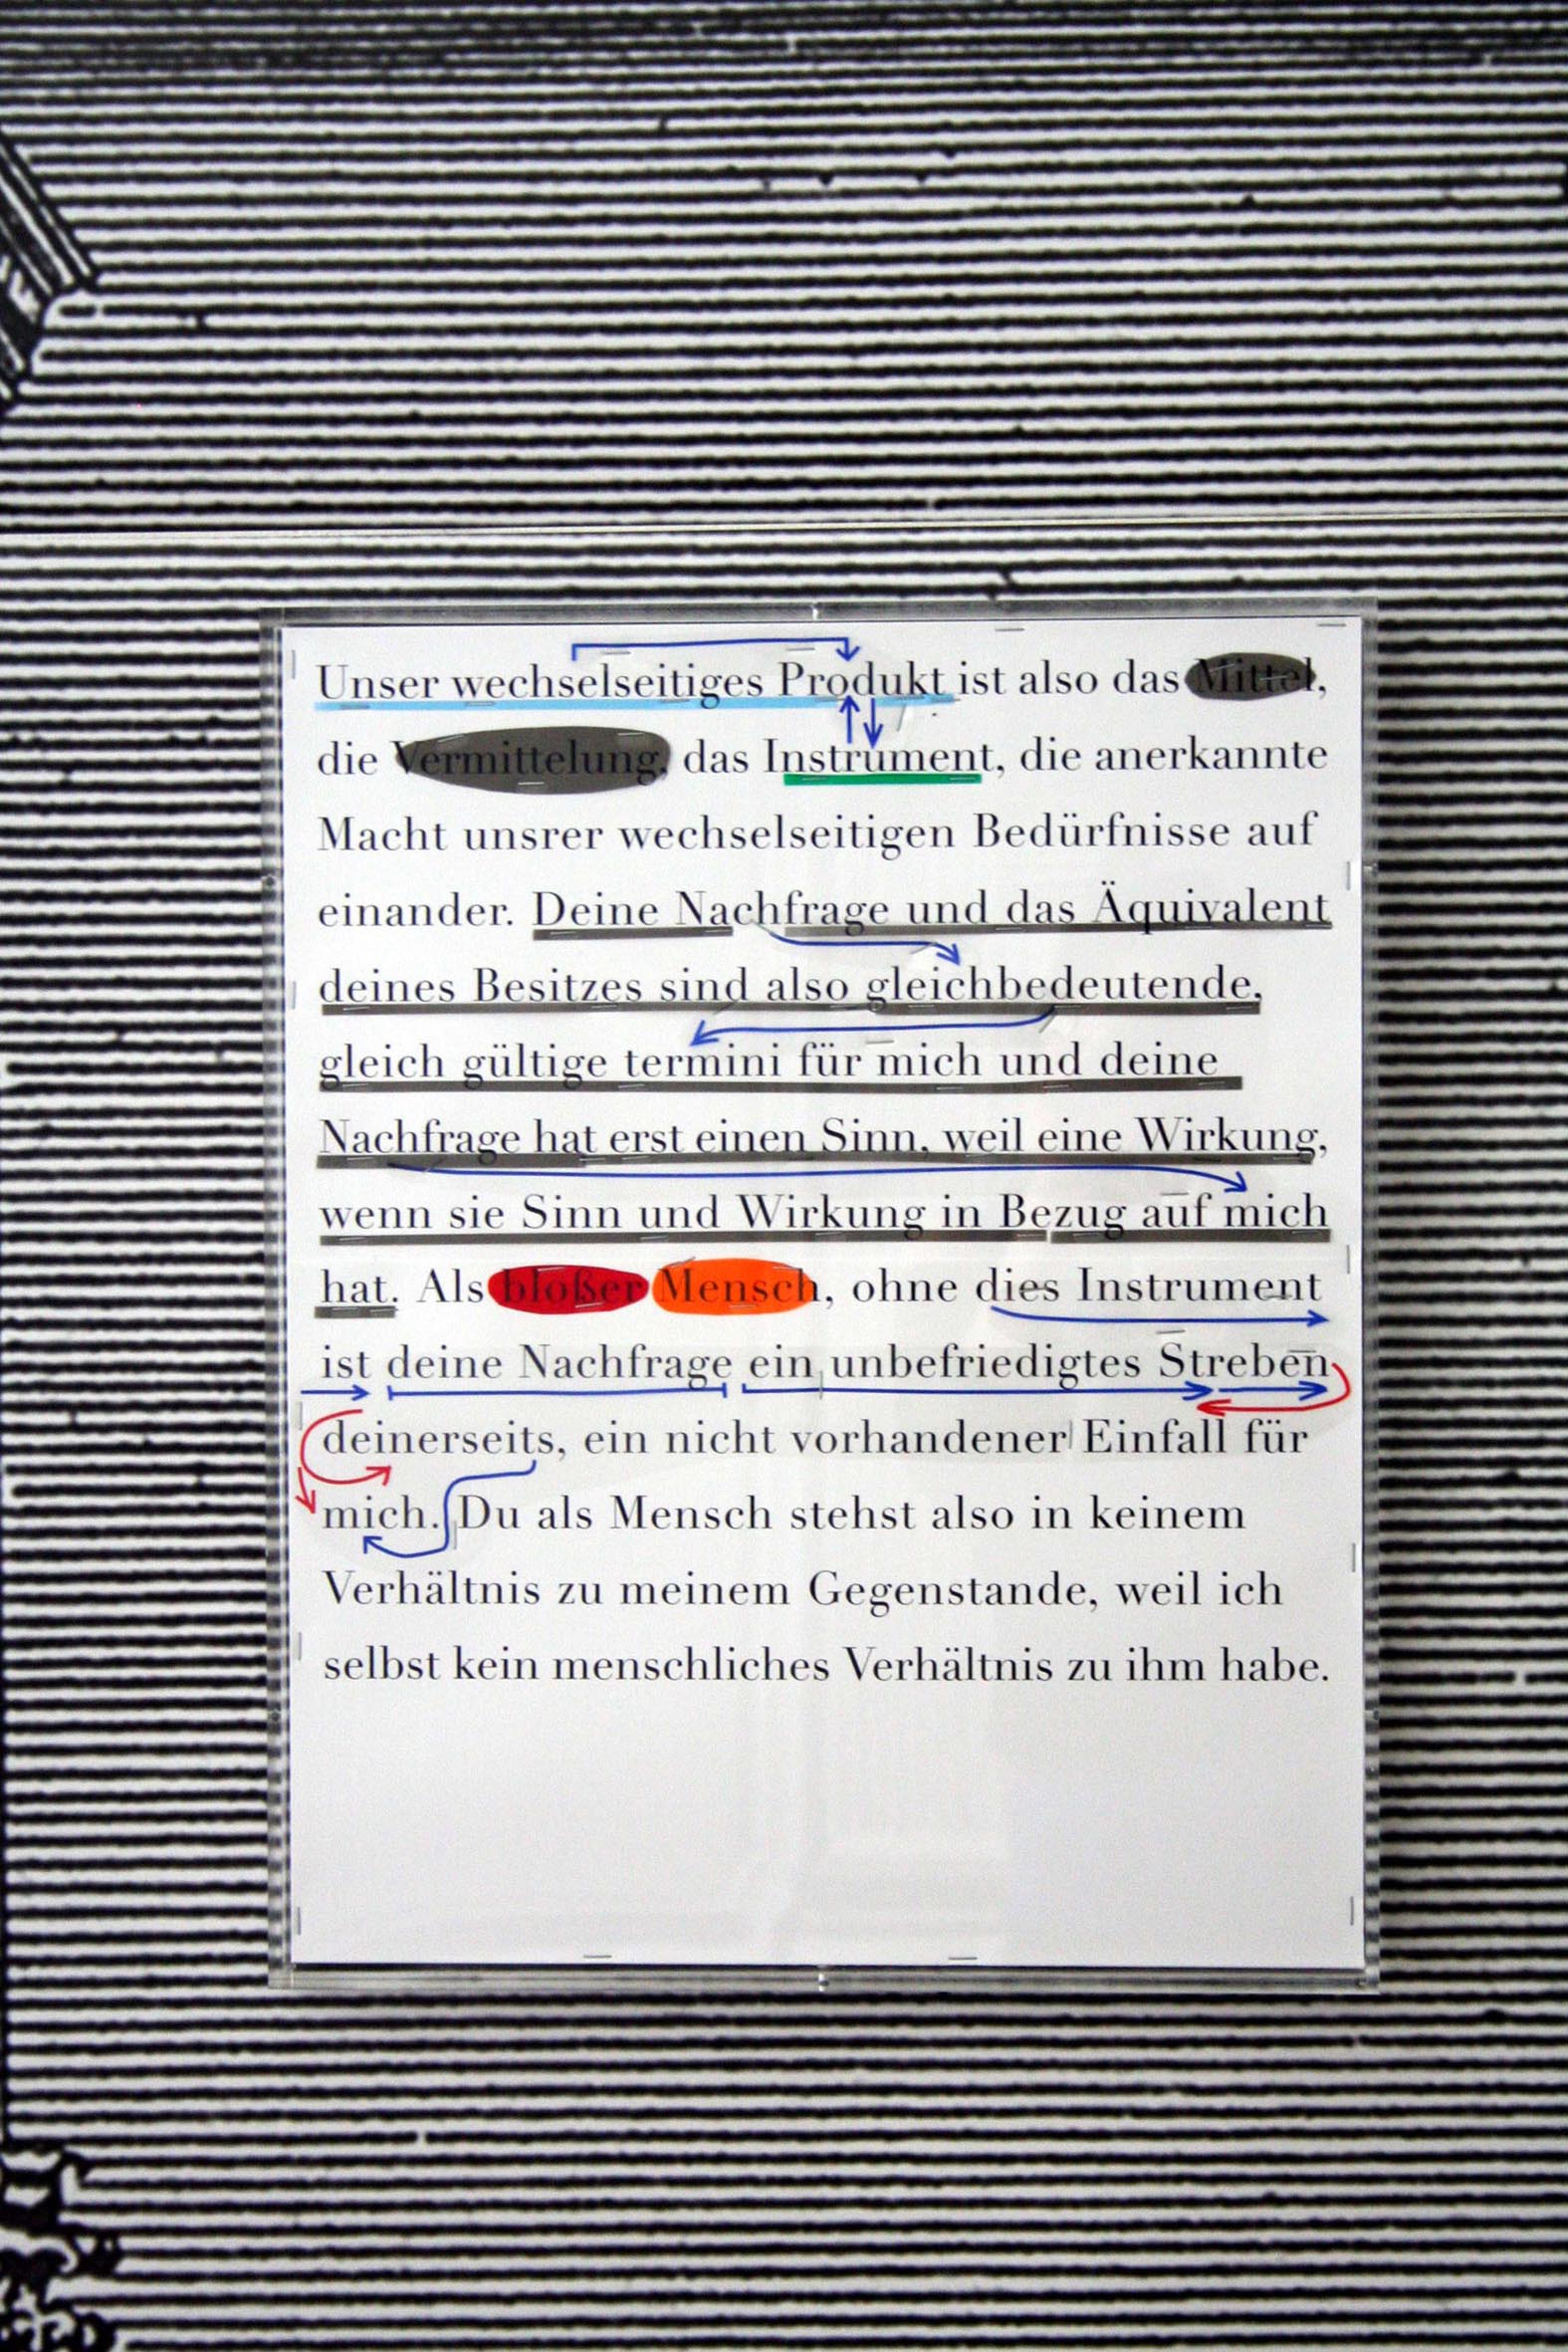 Unser wechselseitiges Produkt ist also das Mittel,
die Vermittelung, das Instrument, die anerkannte
Macht unsrer wechselseitigen Bedürfnisse auf
einander. Deine Nachfrage und das Äquivalent
deines Besitzes sind also gleichbedeutende,
gleich gültige termini für mich und deine
Nachfrage hat erst einen Sinn, weil eine Wirkung,
wenn sie Sinn und Wirkung in Bezug auf mich
hat. Als bloßer Mensch, ohne dies Instrument
ist deine Nachfrage ein unbefriedigtes Streben
deinerseits, ein nicht vorhandener Einfall für
mich. Du als Mensch stehst also in keinem
Verhältnis zu meinem Gegenstande, weil ich
selbst kein menschliches Verhältnis zu ihm habe.